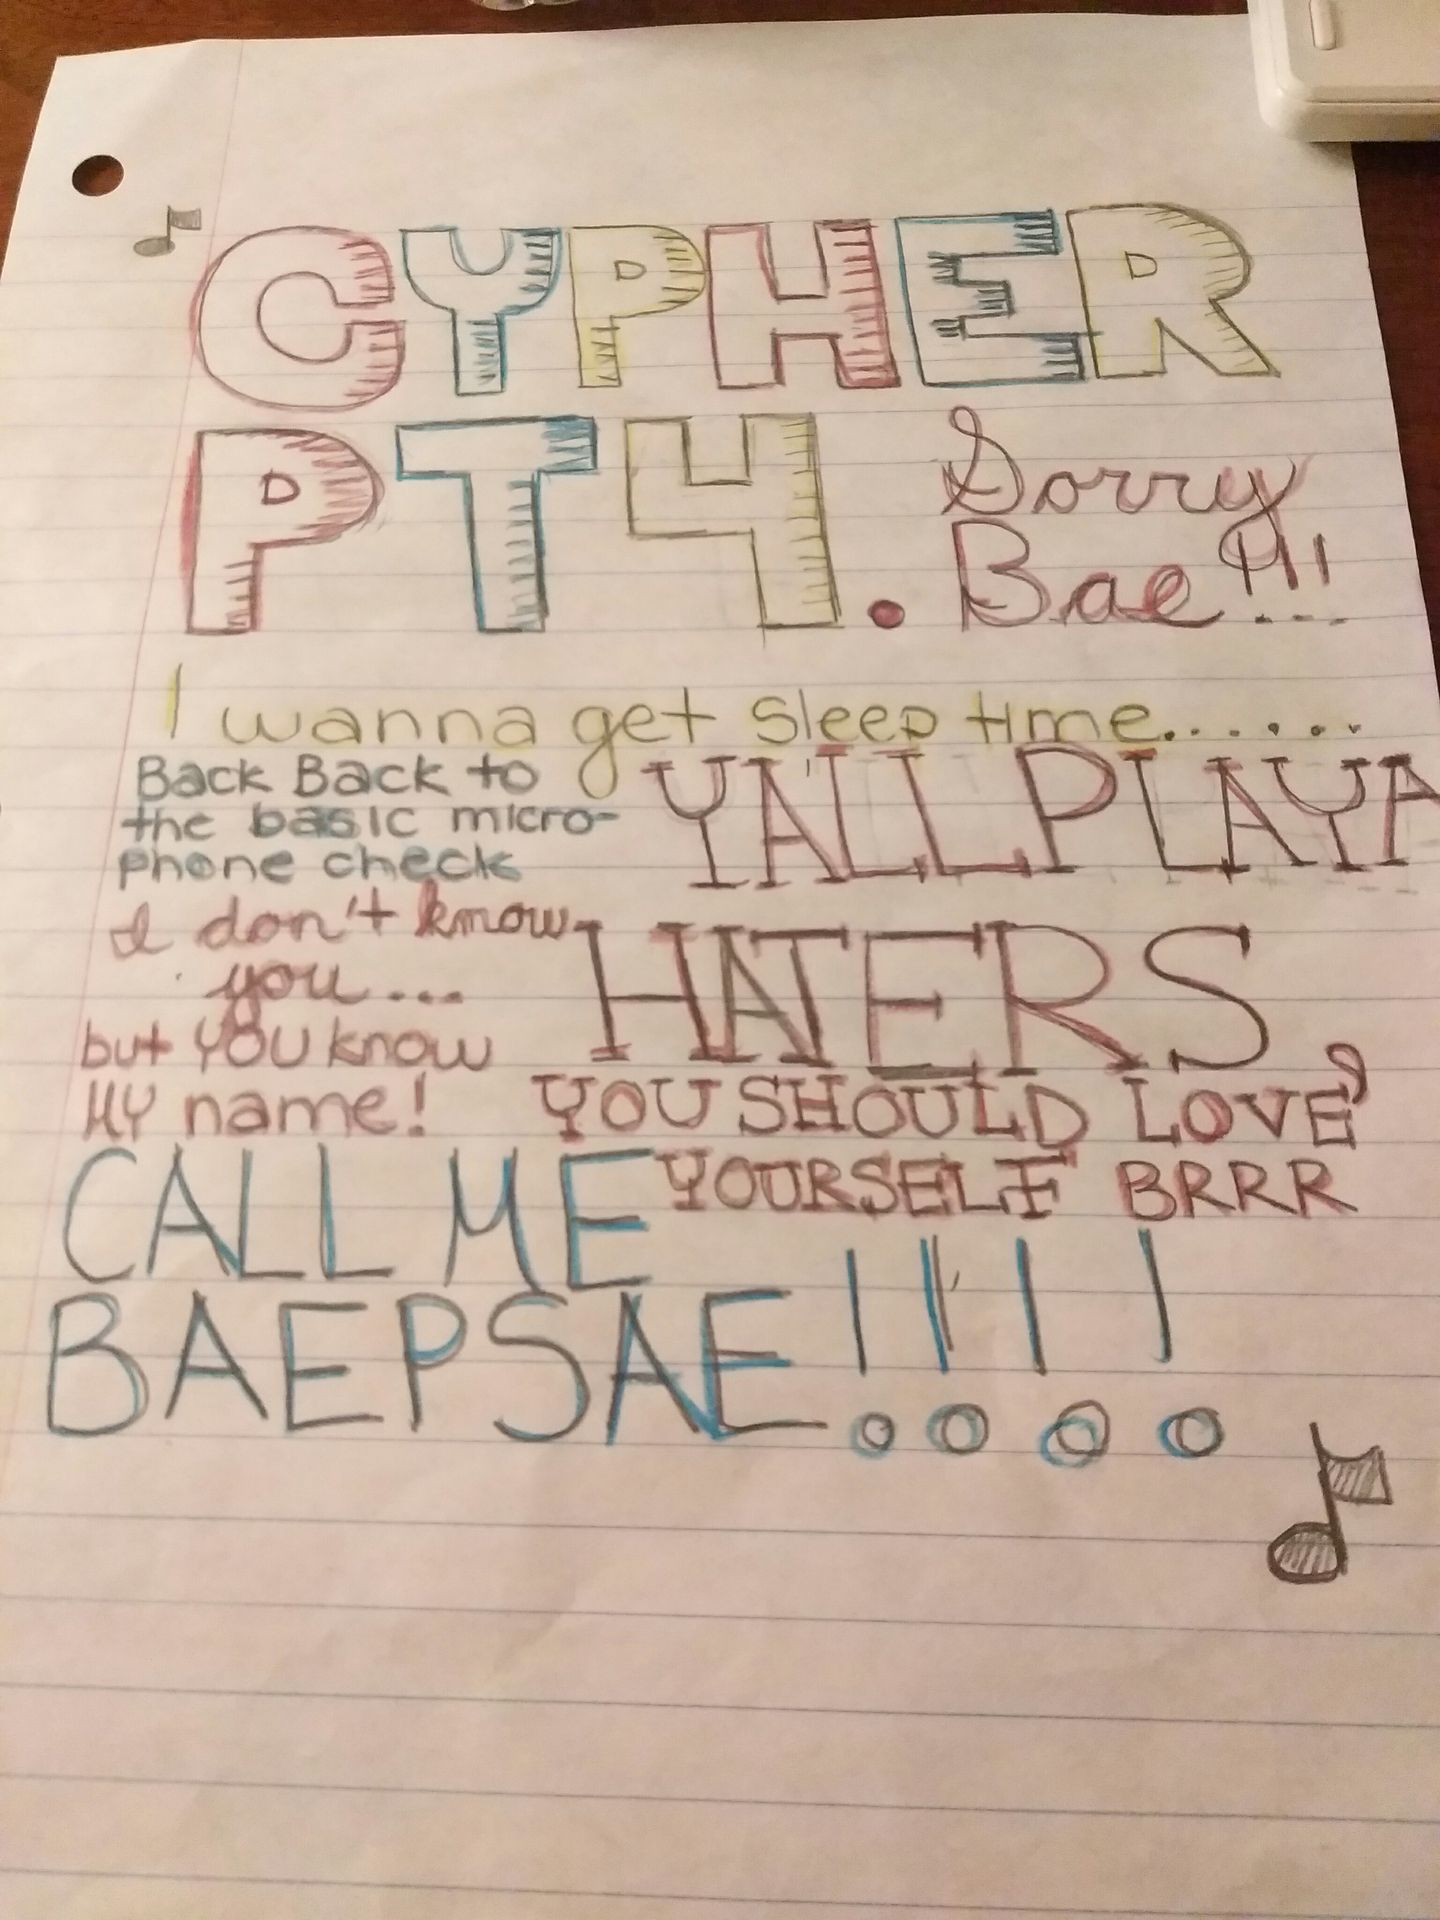 CYPHER
PT4.
Sorry
Bae!!!
I wanna get sleep time.......
Back Back to
the basic micro-
phone check
I don't know
you...
but YOU know
MY name!
YA'LL PLAYA
HATERS,
YOU SHOULD LOVE
YOURSELF BRRR
CALL ME
BAEPSAE!!!!